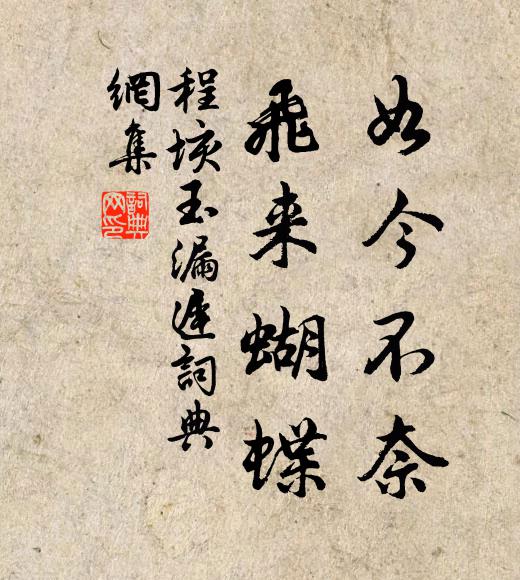 如今不奈
飛来蝴蝶
程垓玉漏遲詞典
網集
詞典網印